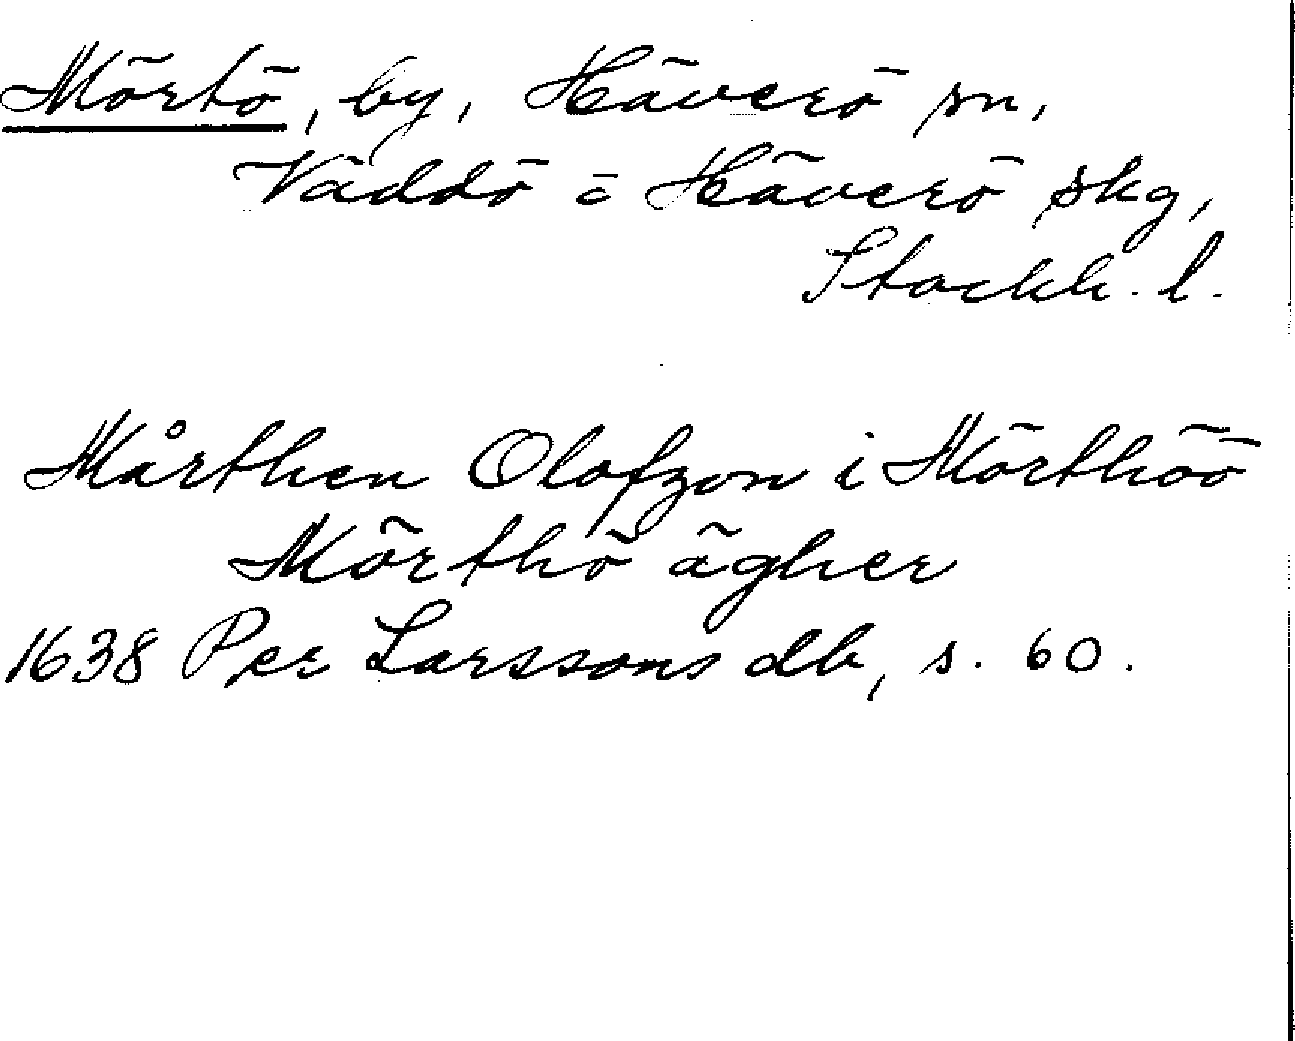 Mörtö, by, Häverö sn,
Väddö o Häverö skg,
Stockh. l.
Mårthen Olofzon i Mörthöö
Mörthö ägher
1638 Per Larssons db, s. 60.